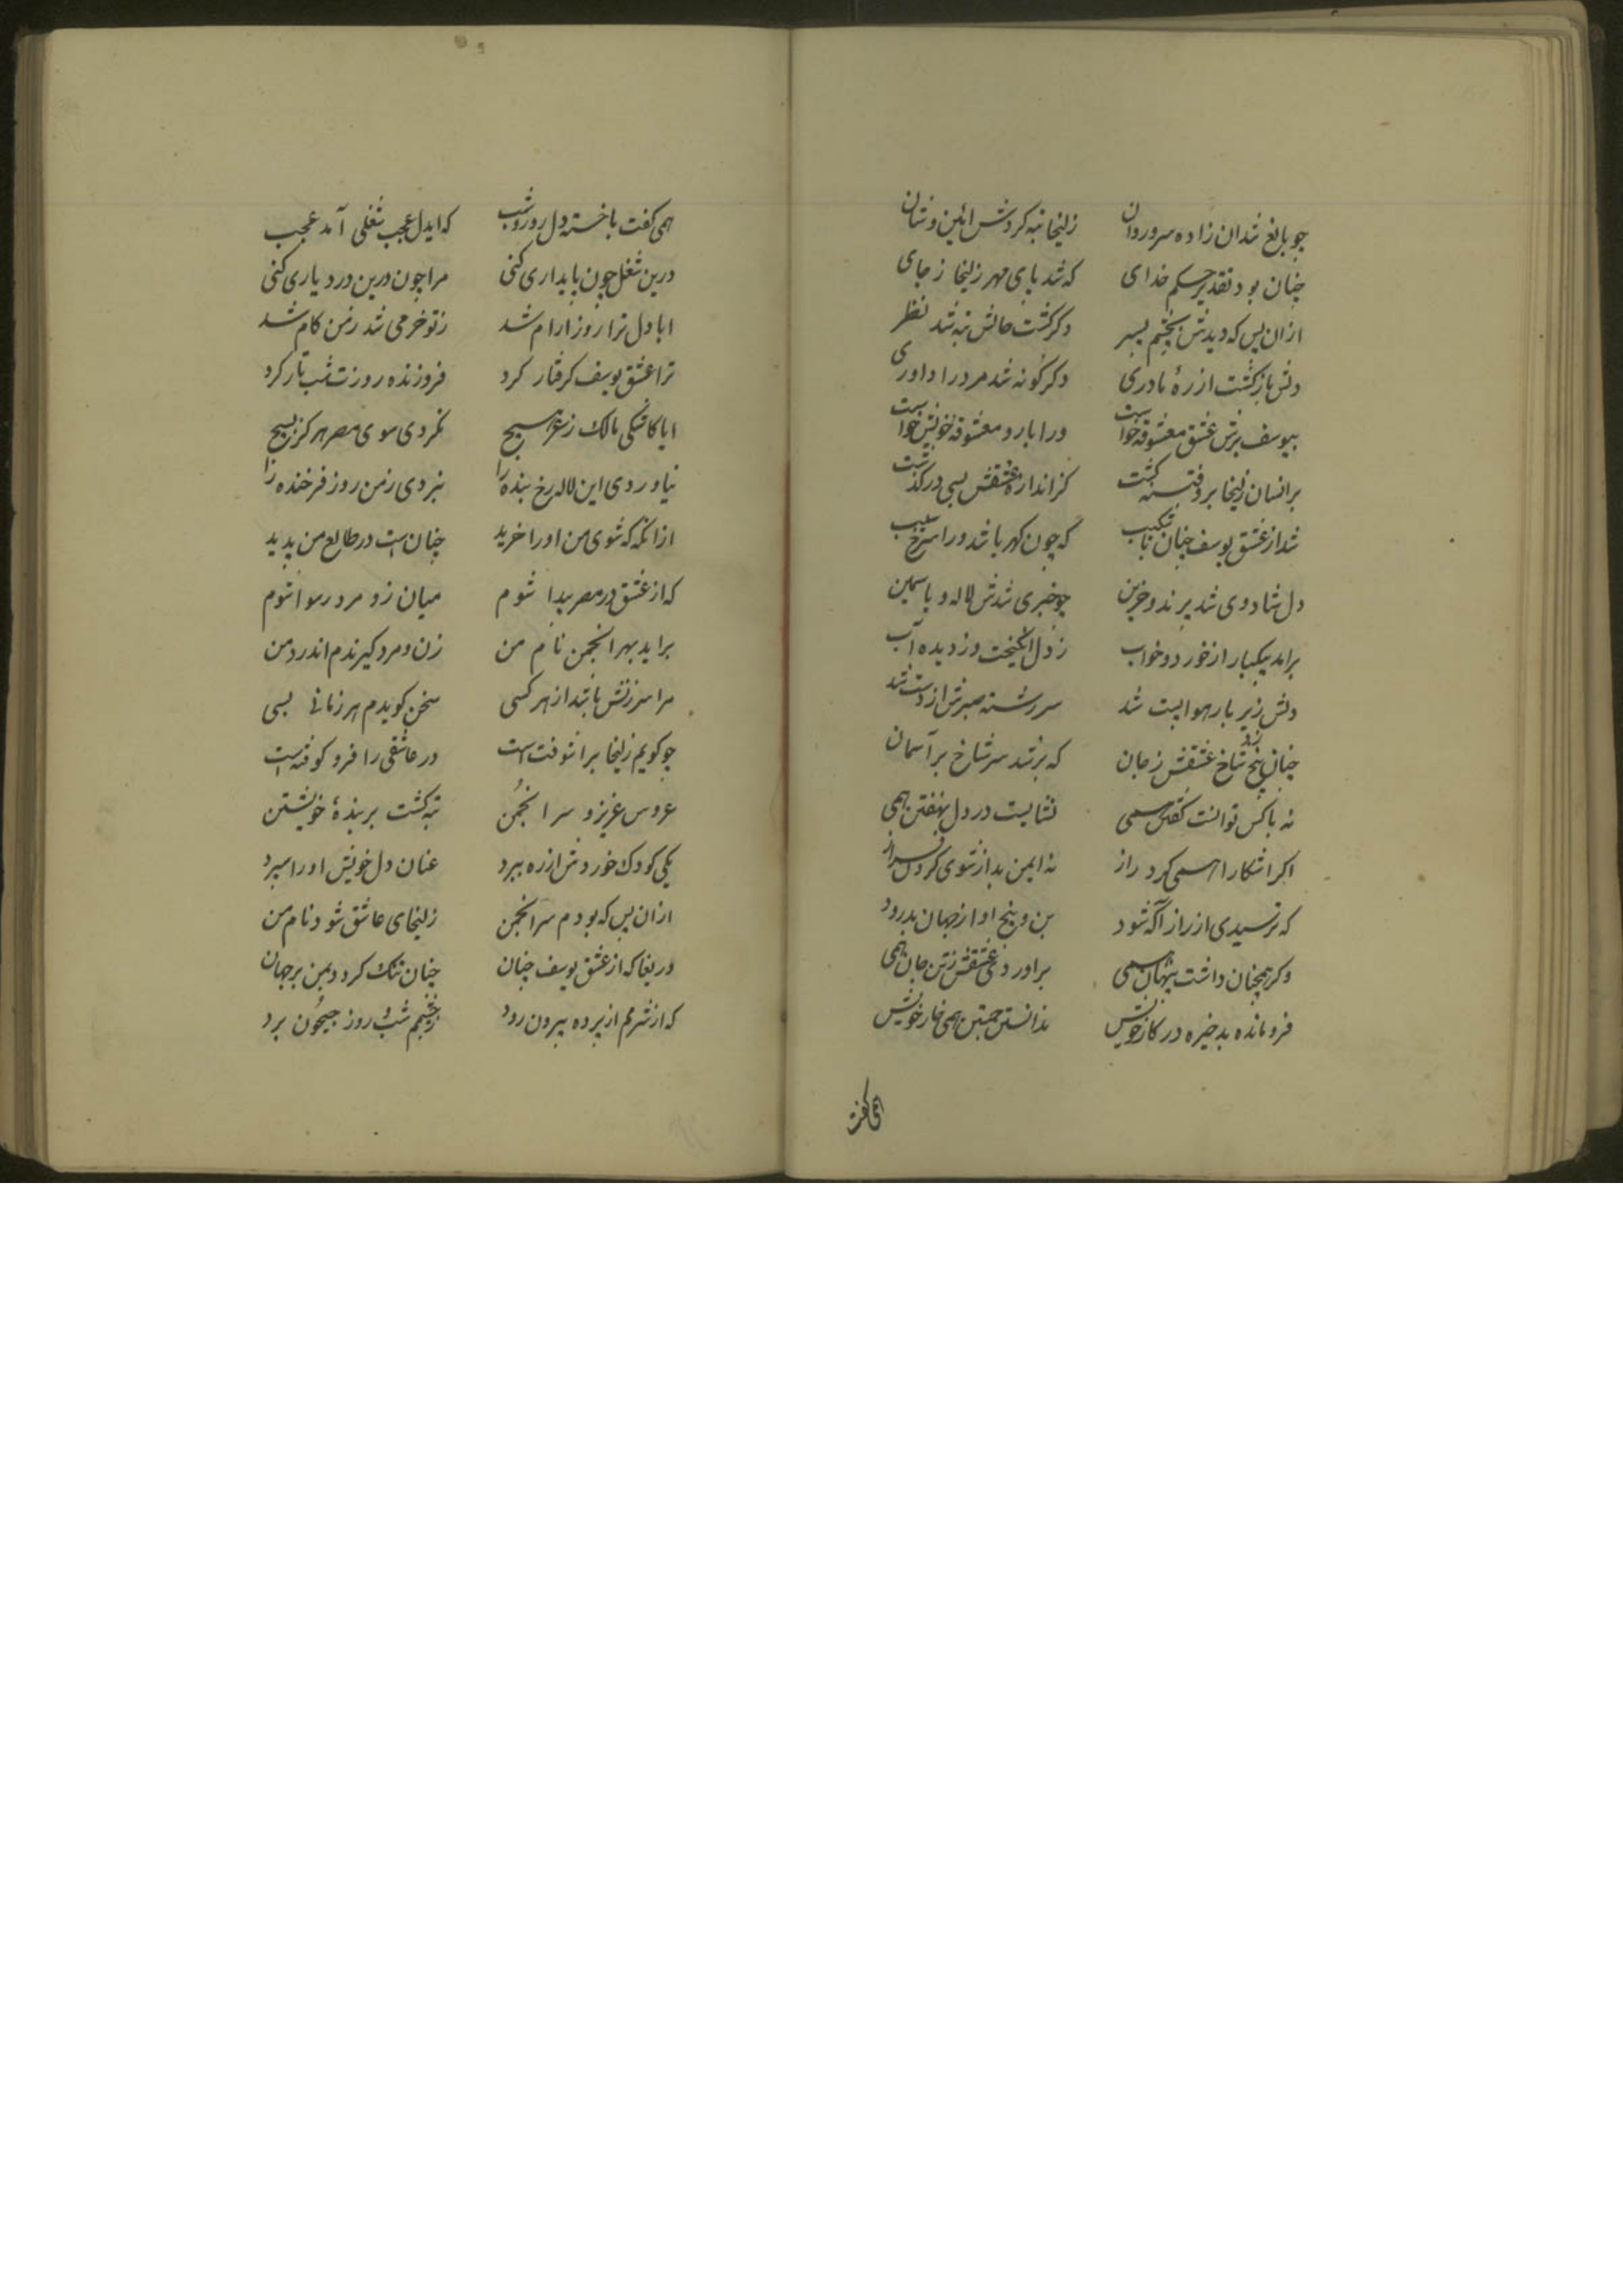 چو بالغ شد ان زاده سرو روان زلیخا تبه کردش ائین و شان
چنان بود تقدیر حکم خدای که شد پای مهر زلیخا ز جای
ازان پس که دیدش بچشم پسر دکر کشت حالش تبه شد نظر
دلش بازکشت از رهٔ مادری دکرکونه شد مر ورا داوری
بیوسف برش عشق معشوقه خواست ورا یار و معشوقهٔ خویش خواست
برانسان زلیخا برو فتنه کشت کز اندازه عشقش بسی درکذشت
شد از عشق یوسف چنان ناشکیب که چون کهربا شد ورا سرخ سیب
دل شاد وی شد پرند و حزین چو خیری شدش لاله و یاسمین
برامد بیکبار از خورد و خواب ز دل انکیخت وز دیده آب
دلش زیر بار هوا پست شد سر رشته صبرش از دست شد
چنان بیخ زد شاخ عشقش ز جان که بر شد سر شاخ بر آسمان
نه باکس توانست کفتن همی نشایست در دل نهفتن همی
اکر اشکارا همی کرد راز نه ایمن بد از شوی کردن فراز
که ترسیدی از راز آکه شود بن و بیخ او از جهان بدرود
وکر همچنان داشت پنهان همی براوردی عشقش زتن جان همی
فرومانده بد خیره در کار خویش ندانستن جستن همی خار خویش
همی کفت
همی کفت با خسته دل روز و شب که ایدل عجب شغلی آمد عجب
درین شغل چون پایداری کنی مرا چون درین درد یاری کنی
ایا دل ترا روز ارام شد ز تو خرمی شد ز من کام شد
ترا عشق یوسف کرفتار کرد فروزنده روزت شب تار کرد
ایا کاشکی مالک زعر بسیج نکردی سوی مصر هرکز بسیج
نیاوردی این لاله رخ بنده را نبردی ز من روز فرخنده را
ازانکه که شوی من او را خرید چنان است در طالع من پدید
که از عشق در مصر پیدا شوم میان زو مرد رسوا شوم
براید بهر انجمن نام من زن و مرد کیرندم اندر دمن
مرا سرزنش باشد از هر کسی سخن کویدم هر زمانی بسی
چو کویم زلیخا براشوفت است در عاشقی را فرو کوفته است
عروس عزیز و سر انجمن تبه کشت بر بندهٔ خویشتن
یکی کودک خرد وش از ره ببرد عنان دل خویش او را سپرد
ازان پس که بودم سر انجمن زلیخای عاشق شود نام من
دریغا که از عشق یوسف چنان چنان تنک کردد بمن بر جهان
که از شرمم از پرده بیرون رود ز چشمم شب و روز جیحون برد